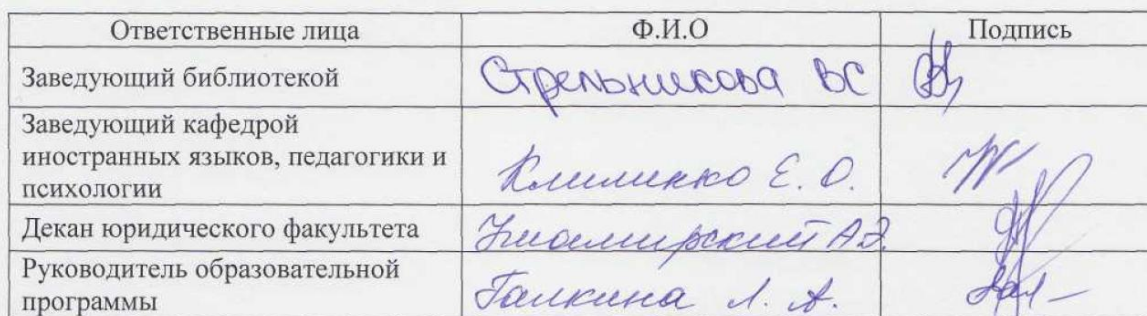 Ответственные лица Ф.И.О Подпись
Заведующий библиотекой Стрельникова ВС
Заведующий кафедрой
иностранных языков, педагогики и
психологии Климинко Е. О.
Декан юридического факультета А.Э.
Руководитель образовательной
программы Галкина Л. А.